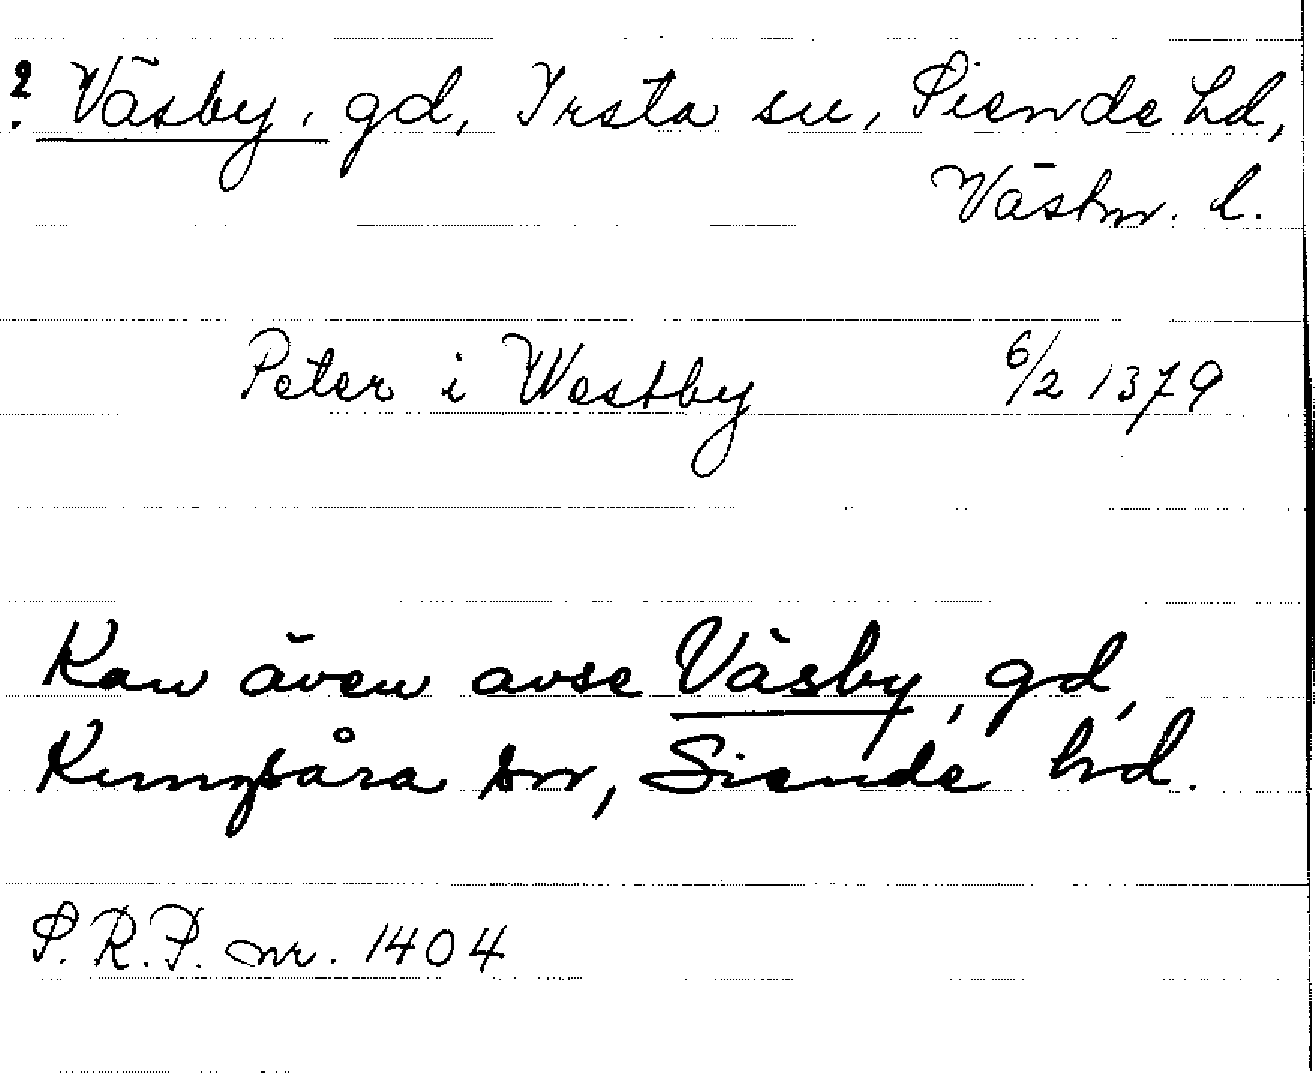 ? Väsby, gd, Irsta sn, Siende hd,
Västm. l.
Peter i Westby 6/2 1379
Kan även avse Väsby, gd,
Kungsåra sn, Siende hd.
S.R.P. nr. 1404